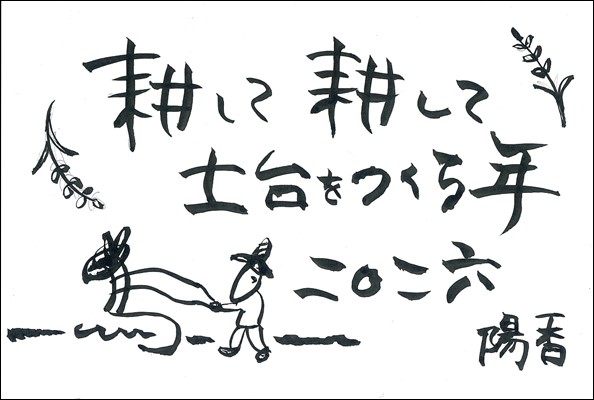 耕して 耕して
土台をつくる年
二〇二六
陽香